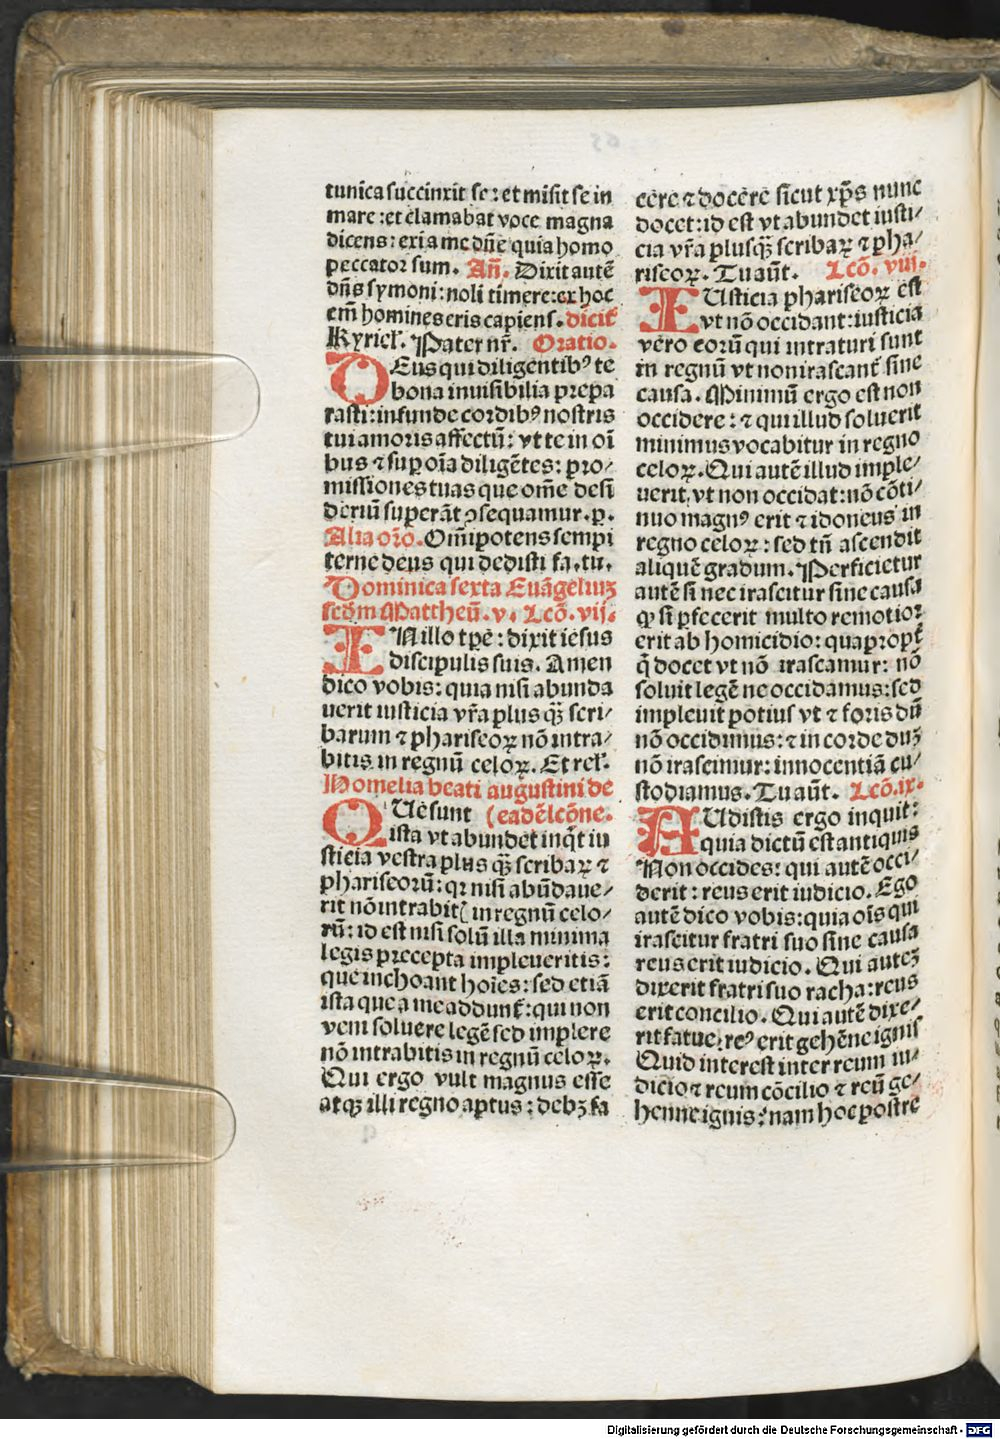 tunica succinxit se: et misit se in
mare: et clamabat voce magna
dicens: exi a me dñe quia homo
peccator sum. Añ. Dixit autē
dñs symoni: noli timere: ex hoc
em̄ homines eris capiens. dicit᷑
Kyriel̕. Pater nr̄. Oratio.
DEus qui diligentibꝰ te
bona inuisibilia prepa
rasti: infunde cordibꝰ nostris
tui amoris affectū: vt te in oī
bus ⁊ suꝑ oīa diligētes: pro/
missiones tuas que om̄e desi
deriū superāt ꝯsequamur. p.
Alia or̄o. Om̄ipotens sempi
terne deus qui dedisti fa. tu.
Dominica sexta Euāgeliuꝫ
scd̄m Mattheū. v. Lcō. vij.
IN illo tꝑe: dixit iesus
discipulis suis. Amen
dico vobis: quia nisi abunda
uerit iusticia vr̄a plus qꝫ̄ scri/
barum ⁊ phariseoꝝ nō intra/
bitis in regnū celoꝝ. Et rel̕.
Homelia beati augustini de
QUe sunt (eadē lcōne.
ista vt abundet inq̄t iu
sticia vestra plus qꝫ̄ scribaꝝ ⁊
phariseorū: qꝛ nisi abūdaue/
rit nō intrabit( in regnū celo/
rū: id est nisi solū illa minima
legis precepta impleueritis:
que inchoant hoīes: sed etiā
ista que a me addunt᷑: qui non
veni soluere legē sed implere
nō intrabitis in regnū celoꝝ.
Qui ergo vult magnus esse
atqꝫ illi regno aptus: debꝫ fa
cere ⁊ docere sicut xp̄s nunc
docet: id est vt abundet iusti/
cia vr̄a plusqꝫ̄ scribaꝝ ⁊ pha/
riseoꝝ. Tu aūt. Lcō. viij.
IUsticia phariseoꝝ est
vt nō occidant: iusticia
vero eorū qui intraturi sunt
in regnū vt non irascant᷑ sine
causa. Minimū ergo est non
occidere: ⁊ qui illud soluerit
minimus vocabitur in regno
celoꝝ. Qui autē illud imple/
uerit, vt non occidat: nō cōti/
nuo magnꝰ erit ⁊ idoneus in
regno celoꝝ: sed tn̄ ascendit
aliquē gradum. Perficietur
autē si nec irascitur sine causa
qꝙ si ꝑfecerit multo remotior
erit ab homicidio: quapropt᷑
q̄ docet vt nō irascamur: nō
soluit legē ne occidamus: sed
impleuit potius vt ⁊ foris dū
nō occidimus: ⁊ in corde duꝫ
nō irascimur: innocentiā cu/
stodiamus. Tu aūt. Lcō. ix.
AUdistis ergo inquit:
quia dictū est antiquis
Non occides: qui autē occi/
derit: reus erit iudicio. Ego
autē dico vobis: quia oīs qui
irascitur fratri suo sine causa
reus erit iudicio. Qui auteꝫ
dixerit fratri suo racha: reus
erit concilio. Qui autē dixe/
rit fatue: reꝰ erit gehēne ignis
Quid interest inter reum iu/
dicio ⁊ reum cōcilio ⁊ reū ge/
henne ignis: nam hoc postre
Digitalisierung gefördert durch die Deutsche Forschungsgemeinschaft - DFG